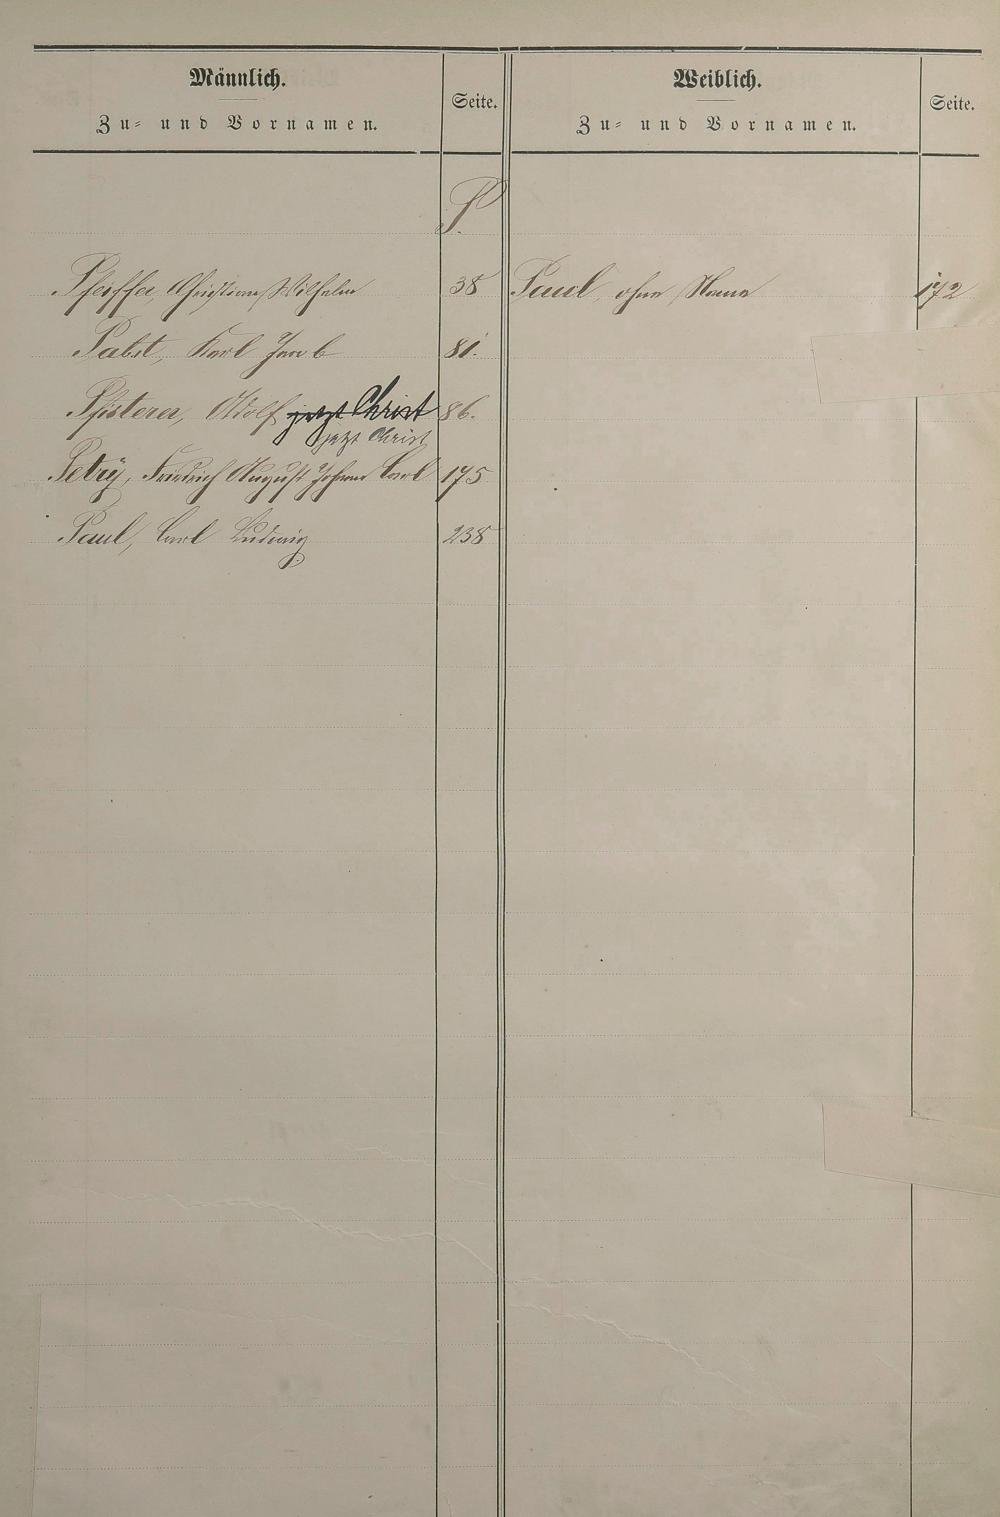 Männlich.
Zu= und Vornamen.
Seite.
Weiblich.
Zu= und Vornamen.
Seite.
P.
Pfeiffer, Christian Wilhelm 38
Paul, ohne Name 172
Pabst, Karl Jacob 81.
Pfisterer, Adolf jetzt Christ 86.
jetzt Christ
Petry, Friedrich August Johann Carl 175
Paul, Carl Ludwig 238